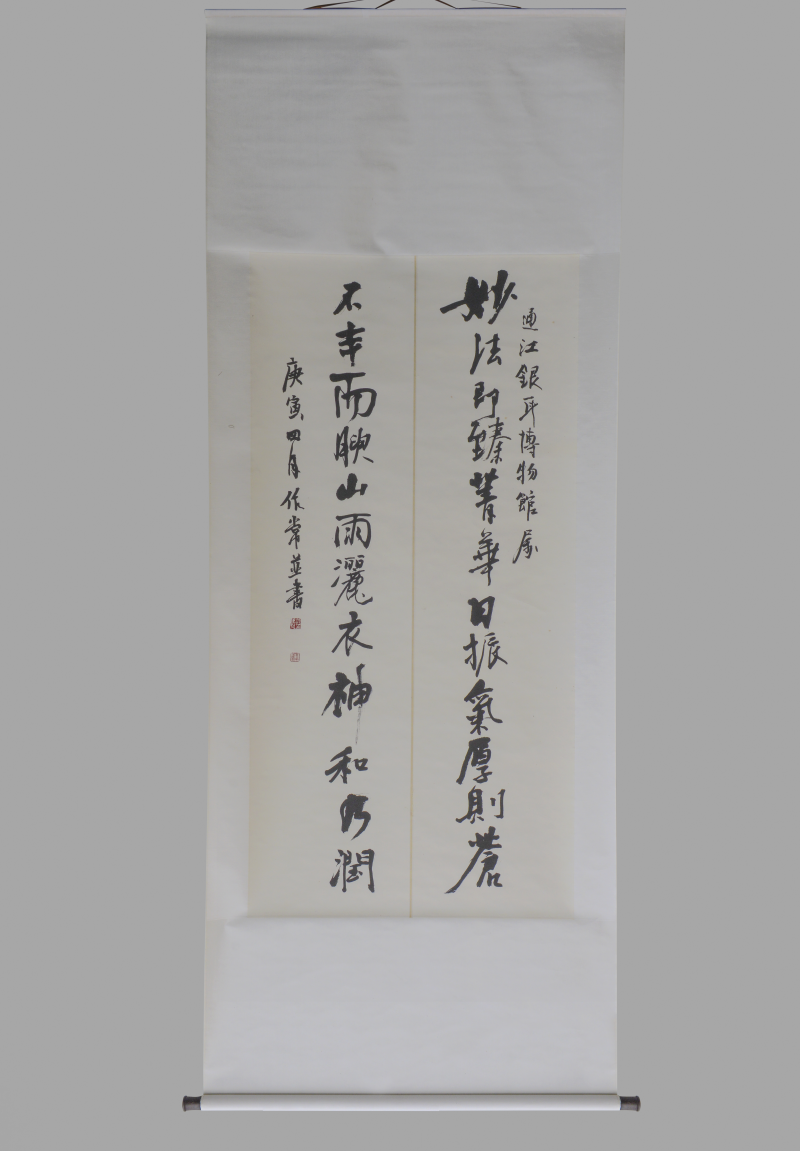 通江銀耳博物館屬
妙法即臻菁華日振氣厚則蒼
不幸而映山雨灑衣神和乃潤
庚寅四月作常並書